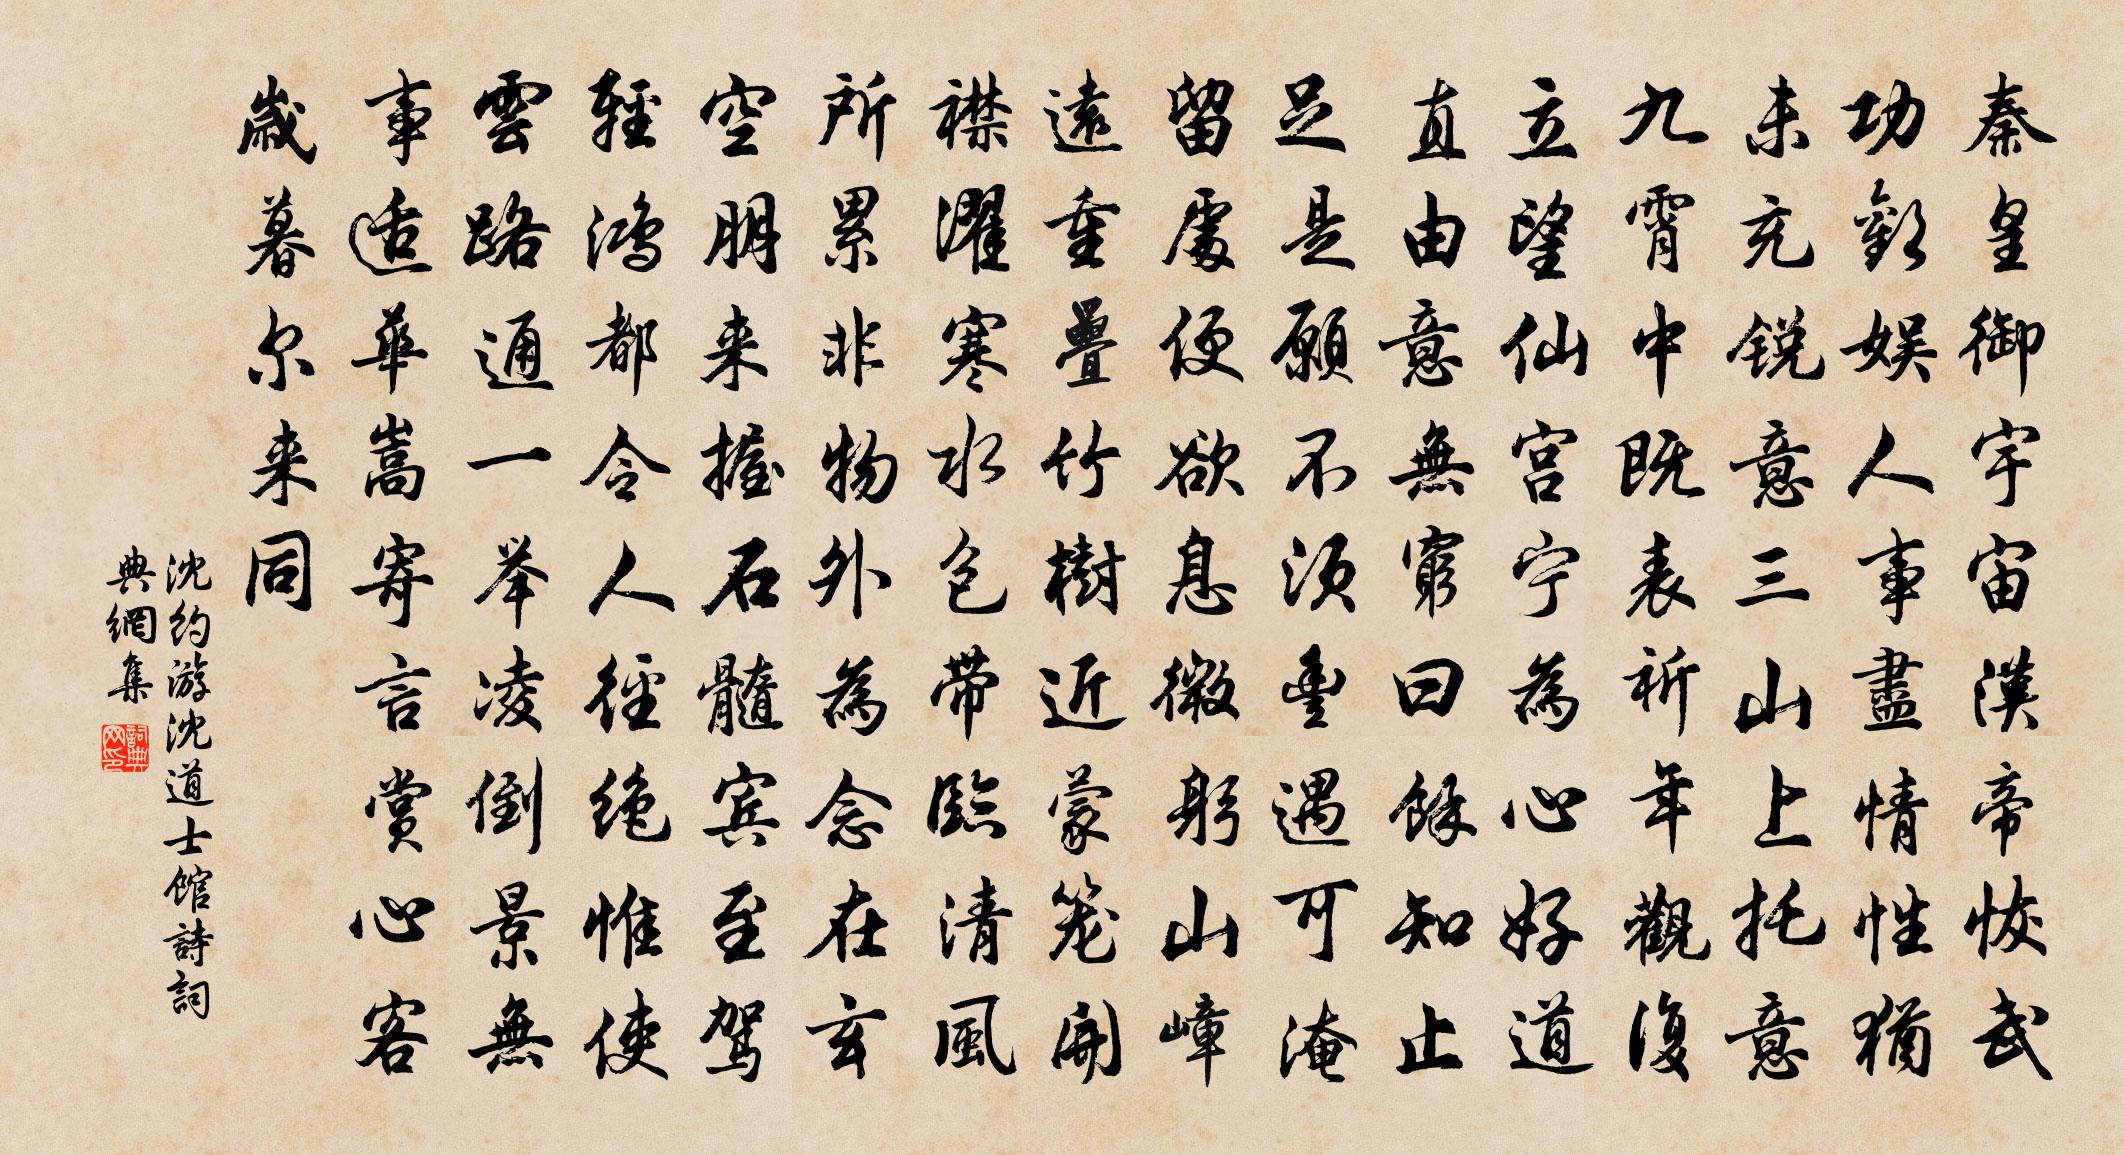 秦皇御宇宙漢帝恢武
功歡娱人事盡情性猶
未充锐意三山上托意
九霄中既表祈年觀復
立望仙宫宁為心好道
直由意無窮曰餘知止
足是願不须豊遇可淹
留處便欲息微躬山嶂
遠重疊竹樹近蒙笼開
襟濯寒水包带臨清風
所累非物外為念在玄
空朋来握石髓宾至驾
輕鸿都令人徑绝惟使
雲路通一举凌倒景無
事适華嵩寄言賞心客
歲暮尔来同
沈約游沈道士館詩詞
典網集
詞典网印